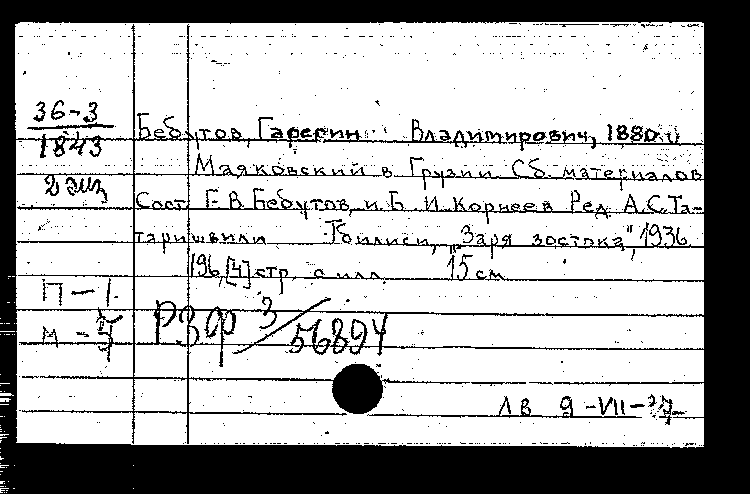 36-3
1843
2 экз
Бебутов, Гарегин Владимирович, 1880
Маяковский в Грузии Сб. материалов
Сост. Г. В. Бебутов, и Б. И. Корнеев Ред. А. С. Та-
таришвили Тбилиси, „Заря востока“, 1936
196, [4] стр. с илл. 15 см
П - 1.
М -
РЗФ 3/56894
ЛВ 9-VII-37